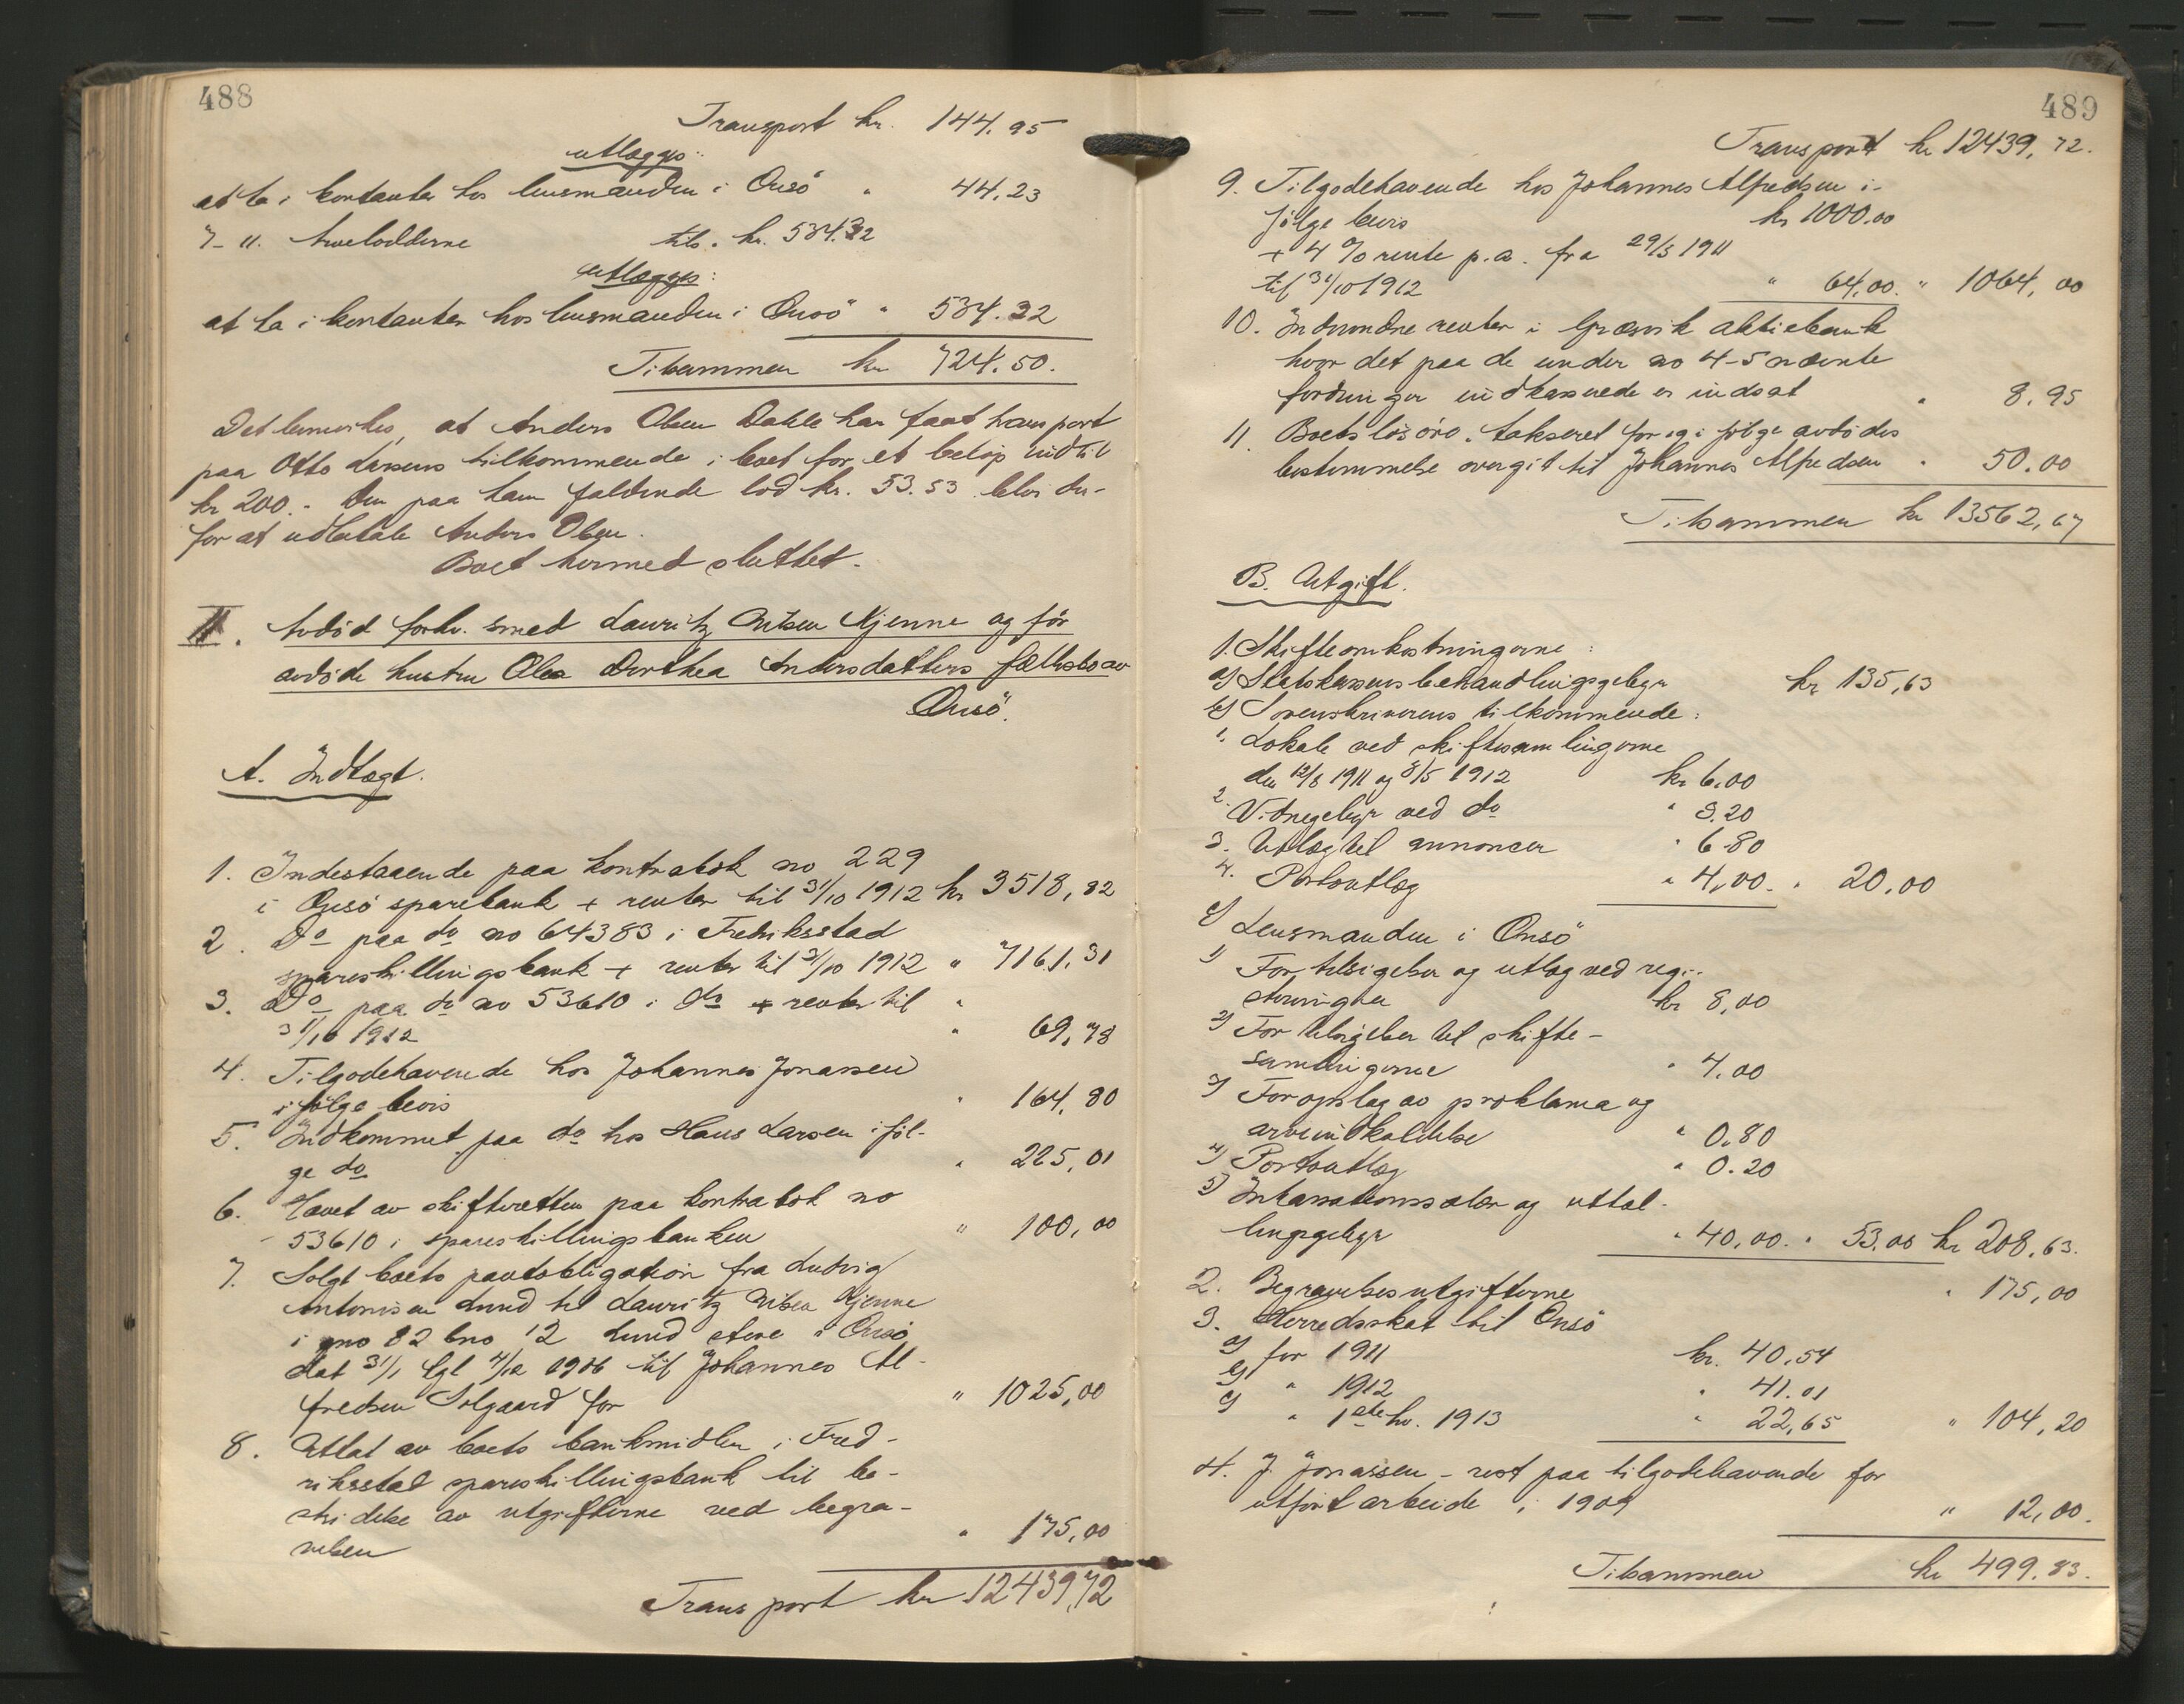 488
Transport kr. 144.95
utlægges:
at ta i kontanter hos lensmanden i Onsö " 44.23
7-11. arvelodderne tils. kr. 534.32
utlægges:
at ta i kontanter hos lensmanden i Onsö " 534.32
Tilsammen kr 724.50.
Det bemerkes, at Anders Olsen Dahle har faat transport
paa Otto Larsens tilkommende i boet for et beløp indtil
kr 200.- Den paa ham faldende lod kr. 53.53 blir der-
for at udbetale Anders Olsen.
Boet hermed sluttet.
II. Avdöd forhv. smed Lauritz Nilsen Kjenne og för
avdöde hustru Olea Dorthea Andersdatters fællesbo av
Onsö.
A. Indtægt.
1. Indestaaende paa kontrabok no 229
i Onsö sparebank + renter til 31/10 1912 kr 3518,82
2. Do paa do no 64383 i Fredriksstad
spareskillingsbank + renter til 31/10 1912 " 7161,31
3. Do paa do no 53610 i do + renter til "
31/10 1912 " 69,78
4. Tilgodehavende hos Johannes Jonassen
ifölge bevis " 164,80
5. Indkommet paa do hos Hans Larsen iföl-
ge do " 225,01
6. Hævet av skifteretten paa kontrabok no
53610 i spareskillingsbanken " 100,00
7. Solgt boets pantobligation fra Ludvig
Antonisen Lund til Lauritz Nilsen Kjenne
i gno 82 bno 12 Lund store i Onsö
dat 31/1 lgl 4/12 1906 til Johannes Al-
fredsen Solgaard for " 1025,00
8. Uttat av boets bankmidler i Fred-
riksstad spareskillingsbank til be-
stridelse av utgifterne ved begra-
velsen " 175,00
Transport kr 12439,72
489
Transport kr 12439,72.
9. Tilgodehavende hos Johannes Alfredsen i-
fölge bevis kr 1000.00
+ 4 % rente p.a. fra 29/3 1911
til 31/10 1912 " 64,00. " 1064,00
10. Indvundne renter i Græsvik aktiebank
hvor det paa de under no 4-5 nævnte
fordringer indkasserede er indsat " 8.95
11. Boets lösöre. takseret for og i fölge avdödes
bestemmelse overgit til Johannes Alfredsen " 50.00
Tilsammen kr 13562,67
B. Utgift.
1. Skifteomkostningerne:
a) Statskassens behandlingsgebyr kr 135,63
b) Sorenskriverens tilkommende:
1. Lokale ved skiftesamlingerne
den 12/8 1911 og 8/5 1912 kr 6.00
2. Vitnegebyr ved do " 3.20
3. Utlæg til annoncer " 6.80
4. Portoutlæg " 4,00. " 20,00
c) Lensmanden i Onsö
1) For tilsigelser og utlæg ved regi-
streringen kr 8,00
2) For tilsigelser til skifte-
samlingerne " 4,00
3) For opslag av proklama og
arveindkaldelse " 0.80
4) Portoutlæg " 0.20
5) Inkassationssalær og uttæl-
lingsgebyr " 40,00. " 53,00 kr 208,63.
2. Begravelsesutgifterne " 175,00
3. Herredsskat til Onsö
a) for 1911 kr. 40,54
b) " 1912 " 41.01
c) " 1ste hv. 1913 " 22,65 " 104,20
4. J. Jonassen - rest paa tilgodehavende for
utfört arbeide i 1909 " 12,00.
Tilsammen kr 499.83.